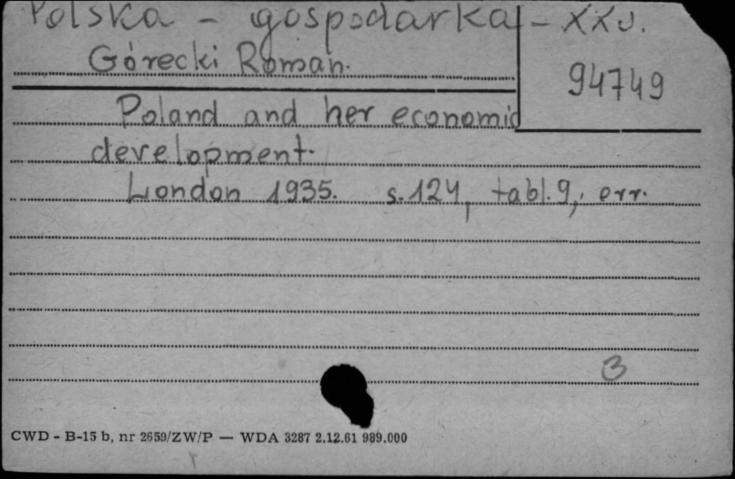 Polska - gospodarka - XX w.
Górecki Roman.
94749
Poland and her economic
development.
London 1935. s. 124, tabl. 9, err.
3
CWD - B-15 b, nr 2659/ZW/P — WDA 3287 2.12.61 989.000